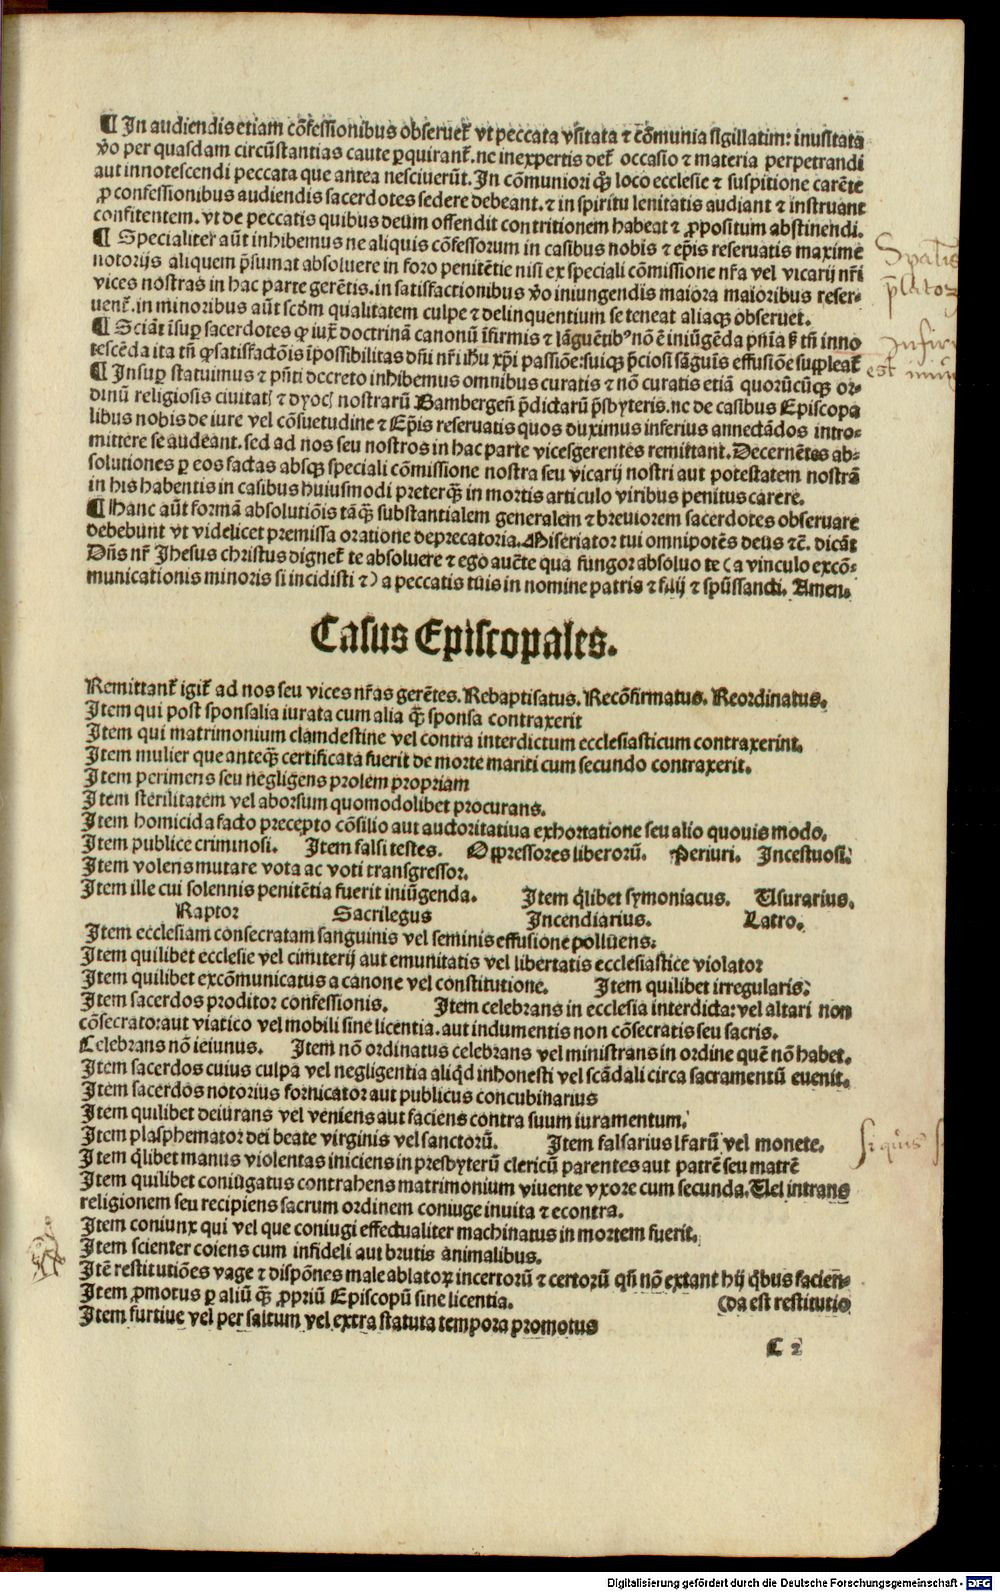 ¶ In audiendis etiam cõfessionibus obseruet᷒ vt peccata vsitata ⁊ cõmunia sigillatim: inusitata
v̊o per quasdam circũstantias caute ꝑquirant᷒. ne inexpertis det᷒ occasio ⁊ materia perpetrandi
aut innotescendi peccata que antea nesciuerũt. In cõmuniori qȝ̃ loco ecclesie ⁊ suspitione carẽte
ꝓ confessionibus audiendis sacerdotes sedere debeant. ⁊ in spiritu lenitatis audiant ⁊ instruant
confitentem. vt de peccatis quibus deum offendit contritionem habeat ⁊ ꝓpositum abstinendi.
¶ Specialiter aũt inhibemus ne aliquis cõfessorum in casibus nobis ⁊ ep̃is reseruatis maxime
notorijs aliquem p̃sumat absoluere in foro penitẽtie nisi ex speciali cõmissione nr̃a vel vicarij nr̃i
vices nostras in hac parte gerẽtis. in satisfactionibus v̊o iniungendis maiora maioribus reser-
uent᷒. in minoribus aũt scđm qualitatem culpe ⁊ delinquentium se teneat aliaqȝ obseruet.
¶ Sciãt ĩsuꝑ sacerdotes ꝙ iux̃ doctrinã canonũ ĩfirmis ⁊ lãguẽtibꝰ nõ ẽ iniũgẽda pñia sȝ tñ inno
tescẽda ita tñ ꝙ satisfactõis ĩpossibilitas dñi nr̃i ihũ xp̃i passiõe: suiqȝ p̃ciosi sãguĩs effusiõe suppleat᷒
¶ Insuꝑ statuimus ⁊ pñti decreto inhibemus omnibus curatis ⁊ nõ curatis etiã quorũcũqȝ or-
dinũ religiosis ciuitatꝭ ⁊ dyocꝭ nostrarũ Bambergeñ p̃dictarũ p̃sbyteris. ne de casibus Episcopa
libus nobis de iure vel cõsuetudine ⁊ Ep̃is reseruatis quos duximus inferius annectãdos intro-
mittere se audeant. sed ad nos seu nostros in hac parte vicesgerentes remittant. Decernẽtes ab-
solutiones ꝑ eos factas absqȝ speciali cõmissione nostra seu vicarij nostri aut potestatem nostrã
in his habentis in casibus huiusmodi preterqȝ̃ in mortis articulo viribus penitus carere.
¶ Hanc aũt formã absolutiõis tãqȝ̃ substantialem generalem ⁊ breuiorem sacerdotes obseruare
debebunt vt videlicet premissa oratione deprecatoria. Miseriator tui omnipotẽs deus ⁊c̃. dicãt
Dñs nr̃ Jhesus christus dignet᷒ te absoluere ⁊ ego auc̃te qua fungor absoluo te (a vinculo excõ-
municationis minoris si incidisti ⁊) a peccatis tuis in nomine patris ⁊ filij ⁊ spũssancti. Amen.
Casus Episcopales.
Remittant᷒ igit᷒ ad nos seu vices nr̃as gerẽtes. Rebaptisatus. Recõfirmatus. Reordinatus.
Item qui post sponsalia iurata cum alia qȝ̃ sponsa contraxerit
Item qui matrimonium clamdestine vel contra interdictum ecclesiasticum contraxerint.
Item mulier que anteqȝ̃ certificata fuerit de morte mariti cum secundo contraxerit.
Item perimens seu negligens prolem propriam
Item sterilitatem vel aborsum quomodolibet procurans.
Item homicida facto precepto cõsilio aut auctoritatiua exhortatione seu alio quouis modo.
Item publice criminosi. Item falsi testes. Oppressores liberorũ. Periuri. Incestuosi.
Item volens mutare vota ac voti transgressor.
Item ille cui solennis penitẽtia fuerit iniũgenda. Item q̃libet symoniacus. Usurarius.
Raptor Sacrilegus Incendiarius. Latro.
Item ecclesiam consecratam sanguinis vel seminis effusione polluens.
Item quilibet ecclesie vel cimiterij aut emunitatis vel libertatis ecclesiastice violator
Item quilibet excõmunicatus a canone vel constitutione. Item quilibet irregularis.
Item sacerdos proditor confessionis. Item celebrans in ecclesia interdicta: vel altari non
cõsecrato: aut viatico vel mobili sine licentia. aut indumentis non cõsecratis seu sacris.
Celebrans nõ ieiunus. Item nõ ordinatus celebrans vel ministrans in ordine quẽ nõ habet.
Item sacerdos cuius culpa vel negligentia aliq̇d inhonesti vel scãdali circa sacramentũ euenit.
Item sacerdos notorius fornicator aut publicus concubinarius
Item quilibet deiurans vel veniens aut faciens contra suum iuramentum.
Item plasphemator dei beate virginis vel sanctorũ. Item falsarius lr̃arũ vel monete.
Item q̃libet manus violentas iniciens in presbyterũ clericũ parentes aut patrẽ seu matrẽ
Item quilibet coniugatus contrahens matrimonium viuente vxore cum secunda. Uel intrans
religionem seu recipiens sacrum ordinem coniuge inuita ⁊ econtra.
Item coniunx qui vel que coniugi effectualiter machinatus in mortem fuerit.
Item scienter coiens cum infideli aut brutis animalibus.
Itẽ restitutiões vage ⁊ dispõnes male ablatoꝝ incertorũ ⁊ certorũ qñ nõ extant hij q̇bus facien-
Item ꝓmotus ꝑ aliũ qȝ̃ ꝓpriũ Episcopũ sine licentia. (da est restitutio
Item furtiue vel per saltum vel extra statuta tempora promotus
C 2
Digitalisierung gefördert durch die Deutsche Forschungsgemeinschaft - DFG